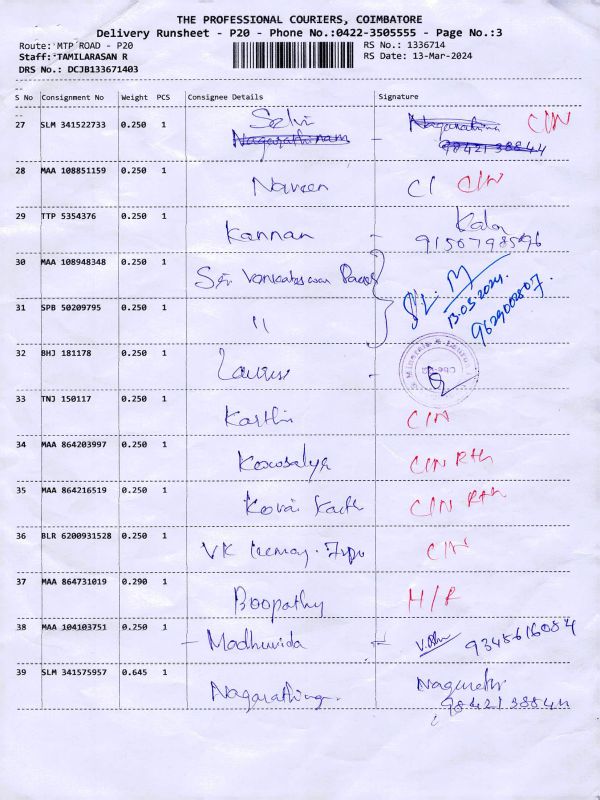 THE PROFESSIONAL COURIERS, COIMBATORE
Delivery Runsheet - P20 - Phone No.:0422-3505555 - Page No.:3
Route: MTP ROAD - P20 RS No.: 1336714
Staff: TAMILARASAN R RS Date: 13-Mar-2024
DRS No.: DCJB133671403
S No Consignment No Weight PCS Consignee Details Signature
27 SLM 341522733 0.250 1 Selvi CIN
Nagarathinam 9842138844
28 MAA 108851159 0.250 1 Naveen CI CIN
29 TTP 5354376 0.250 1 Kannan - Kala
9150798596
30 MAA 108948348 0.250 1 Sri
31 SPB 50209795 0.250 1 "
13.03.2024.
9629002807.
32 BHJ 181178 0.250 1 -
33 TNJ 150117 0.250 1 Karthi CIN
34 MAA 864203997 0.250 1 Kowsalya CIN
35 MAA 864216519 0.250 1 Kovai CIN
36 BLR 6200931528 0.250 1 VK CIN
37 MAA 864731019 0.290 1 Boopathy H/R
38 MAA 104103751 0.250 1 - Madhuvida 9345616084
39 SLM 341575957 0.645 1